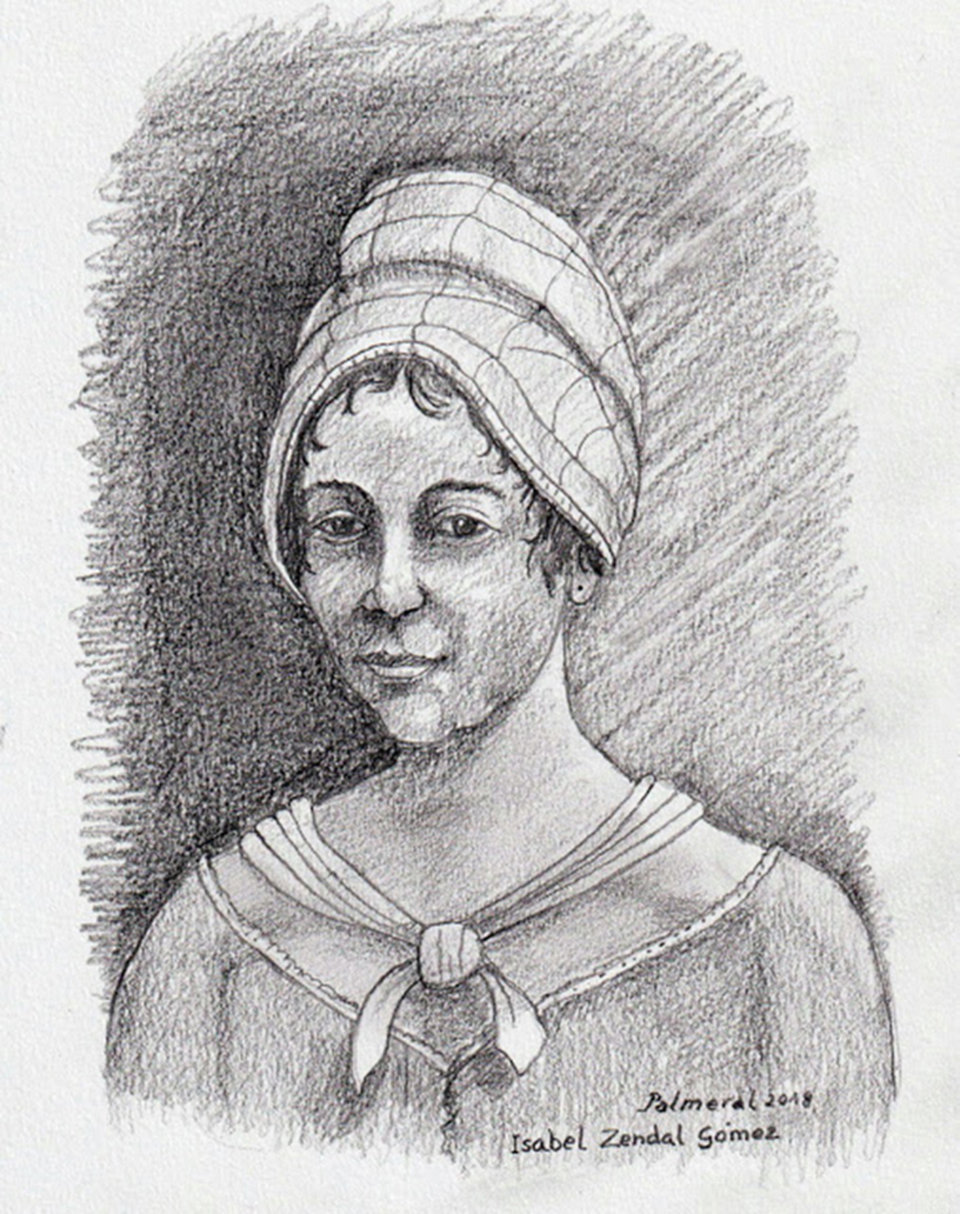 Palmeral 2018
Isabel Zendal Gómez